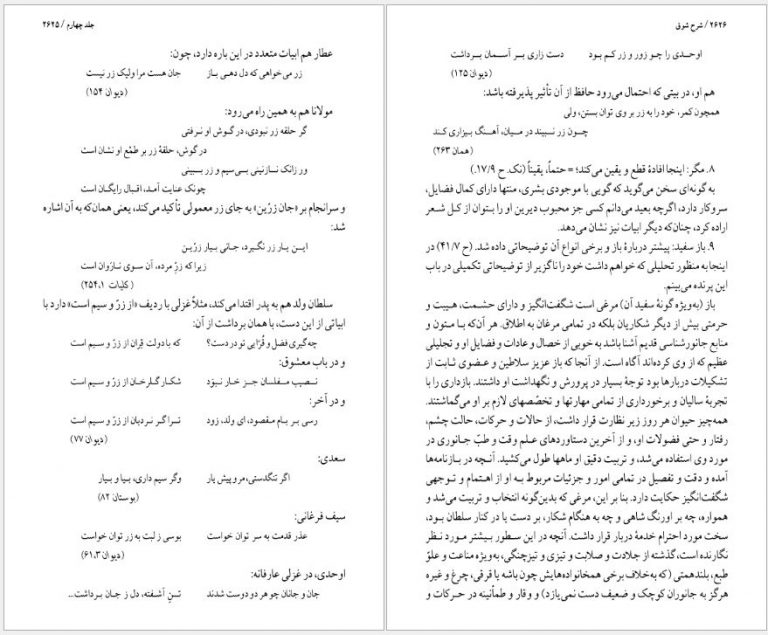 ۲۶۲۶ / شرح شوق
اوحدی را چو زور و زر کم بود دست زاری بر آسمان برداشت
(دیوان ۱۲۵)
هم او، در بیتی که احتمال می‌رود حافظ از آن تأثیر پذیرفته باشد:
همچون کمر، خود را به زر بر وی توان بستن، ولی
چون زر نبیند در میان، آهنگ بیزاری کند
(همان ۲۶۳)
۸. مگر: اینجا افادهٔ قطع و یقین می‌کند؛ = حتماً، یقیناً (نک. ح ۱۷/۹).
به گونه‌ای سخن می‌گوید که گویی با موجودی بشری، منتها دارای کمال فضایل،
سروکار دارد، اگرچه بعید می‌دانم کسی جز محبوب دیرین او را بتوان از کل شعر
اراده کرد، چنان‌که دیگر ابیات نیز نشان می‌دهد.
۹. باز سفید: پیشتر دربارهٔ باز و برخی انواع آن توضیحاتی داده شد. (ح ۴۱/۷) در
اینجا به منظور تحلیلی که خواهم داشت خود را ناگزیر از توضیحاتی تکمیلی در باب
این پرنده می‌بینم.
باز (به‌ویژه گونهٔ سفید آن) مرغی است شگفت‌انگیز و دارای حشمت، هیبت و
حرمتی بیش از دیگر شکاریان بلکه در تمامی مرغان به اطلاق. هر آن‌که با متون و
منابع جانورشناسی قدیم آشنا باشد به خوبی از خصال و عادات و فضایل او و تجلیلی
عظیم که از وی کرده‌اند آگاه است. از آنجا که باز عزیز سلاطین و عضوی ثابت از
تشکیلات دربارها بود توجهٔ بسیار در پرورش و نگهداشت او داشتند. بازداری را با
تجربهٔ سالیان و برخورداری از تمامی مهارتها و تخصّصهای لازم بر او می‌گماشتند.
همه‌چیز حیوان هر روز زیر نظارت قرار داشت، از حالات و حرکات، حالت چشم،
رفتار و حتی فضولات او، و از آخرین دستاوردهای علم وقت و طبّ جانوری در
مورد وی استفاده می‌شد، و تربیت دقیق او ماهها طول می‌کشید. آنچه در بازنامه‌ها
آمده و دقت و تفصیل در تمامی امور و جزئیات مربوط به او از اهتمام و توجهی
شگفت‌انگیز حکایت دارد. بنا بر این، مرغی که بدین‌گونه انتخاب و تربیت می‌شد و
همواره، چه بر اورنگ شاهی و چه به هنگام شکار، بر دست یا در کنار سلطان بود،
سخت مورد احترام خدمهٔ دربار قرار داشت. آنچه در این سطور بیشتر مورد نظر
نگارنده است، گذشته از جلادت و صلابت و تیزی و تیزچنگی، به‌ویژه مناعت و علوّ
طبع، بلندهمتی (که به‌خلاف برخی همخانواده‌هایش چون باشه یا قرقی، چرغ و غیره
هرگز به جانوران کوچک و ضعیف دست نمی‌یازد) و وقار و طمأنینه در حرکات و
جلد چهارم / ۲۶۲۵
عطار هم ابیات متعدد در این باره دارد، چون:
زر می‌خواهی که دل دهی باز جان هست مرا ولیک زر نیست
(دیوان ۱۵۴)
مولانا هم به همین راه می‌رود:
گر حلقه زر نبودی، در گوش او نرفتی
در گوش، حلقهٔ زر بر طمْع او نشان است
ور زانک نازنینی بی‌سیم و زر ببینی
چونک عنایت آمد، اقبال رایگان است
و سرانجام بر «جان زرّین» به جای زر معمولی تأکید می‌کند، یعنی همان‌که به آن اشاره
شد:
این بار زر نگیرد، جانی بیار زرّین
زیرا که زرِ مرده، آن سوی ناروان است
(کلیات ۲۵۴،۱)
سلطان ولد هم به پدر اقتدا می‌کند، مثلاً غزلی با ردیف «از زرّ و سیم است» دارد با
ابیاتی از این دست، با همان برداشت از آن:
چه گیری فضل و قُرّایی تو در دست؟ که با دولت قِران از زرّ و سیم است
و در باب معشوق:
نصیب مفلسان جز خار نبوَد شکار گلرخان از زرّ و سیم است
و در آخر:
رسی بر بام مقصود، ای ولد، زود ترا گر نردبان از زرّ و سیم است
(دیوان ۷۷)
سعدی:
اگر تنگدستی، مرو پیش یار وگر سیم داری، بیا و بیار
(بوستان ۸۲)
سیف فرغانی:
عذر قدمت به سر توان خواست بوسی ز لبت به زر توان خواست
(دیوان ۶۱،۳)
اوحدی، در غزلی عارفانه:
جان و جانان چو هر دو دوست شدند تنِ آشفته، دل ز جان برداشت...